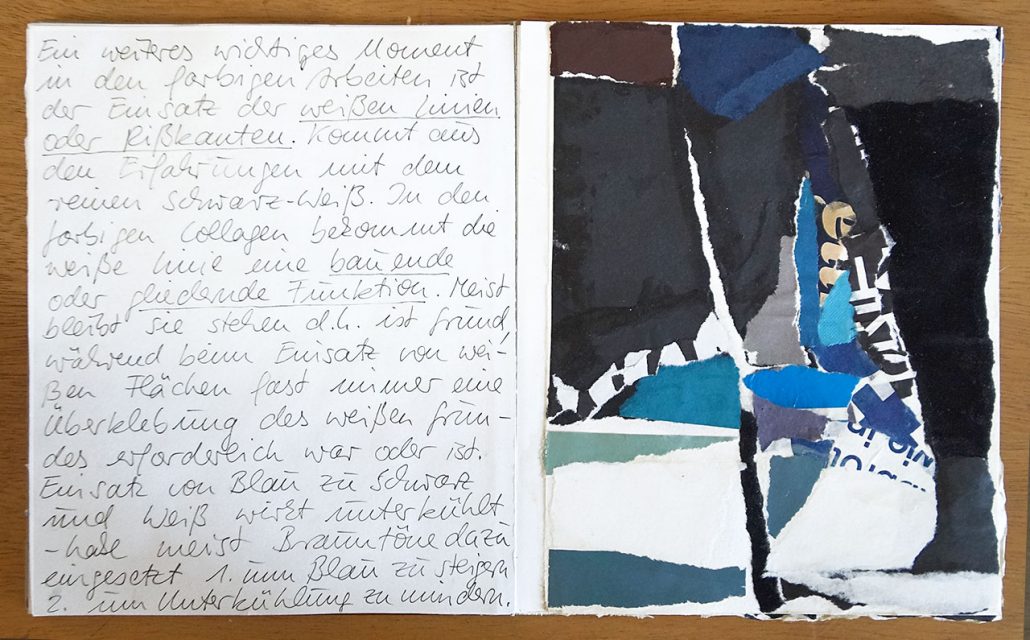 Ein weiteres wichtiges Moment
in den farbigen Arbeiten ist
der Einsatz der weißen Linien
oder Rißkanten. Kommt aus
den Erfahrungen mit dem
reinen Schwarz-Weiß. In den
farbigen Collagen bekommt die
weiße Linie eine bauende
oder gliedernde Funktion. Meist
bleibt sie stehen d.h. ist Grund,
während beim Einsatz von wei-
ßen Flächen fast immer eine
Überklebung des weißen Grun-
des erforderlich war oder ist.
Einsatz von Blau zu Schwarz
und Weiß wirkt unterkühlt
- habe meist Brauntöne dazu
eingesetzt 1. um Blau zu steigern
2. um Unterkühlung zu mindern.